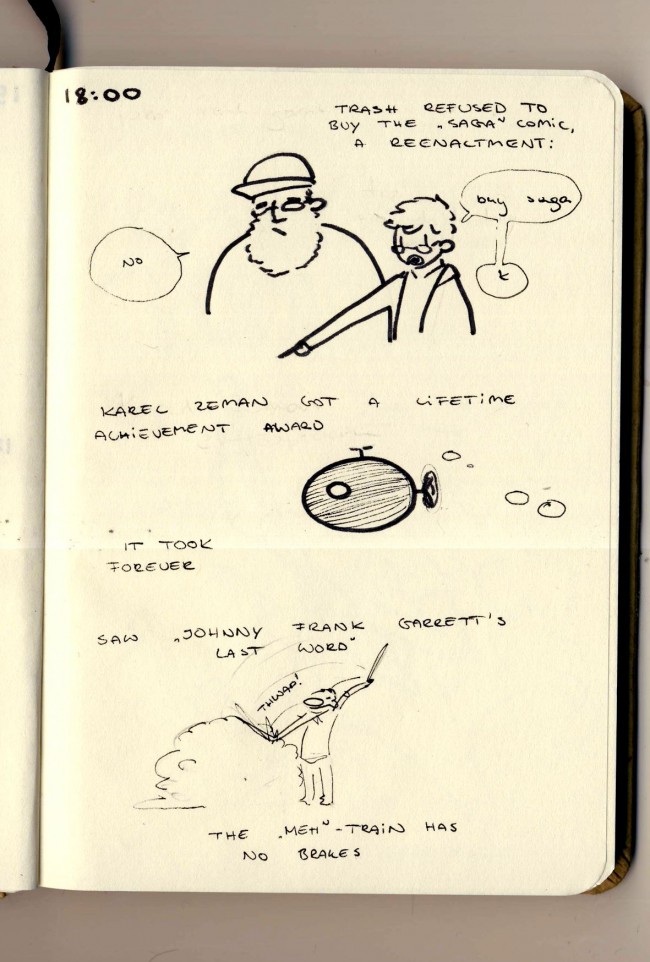 18:00
TRASH REFUSED TO
BUY THE „SAGA“ COMIC,
A REENALTMENT:
buy saga
NO
K
KAREL ZEMAN GOT A LIFETIME
ACHIEVEMENT AWARD
IT TOOK
FOREVER
SAW „JOHNNY FRANK GARRETT'S
LAST WORD“
THWAP!
THE „MEH“-TRAIN HAS
NO BRAKES